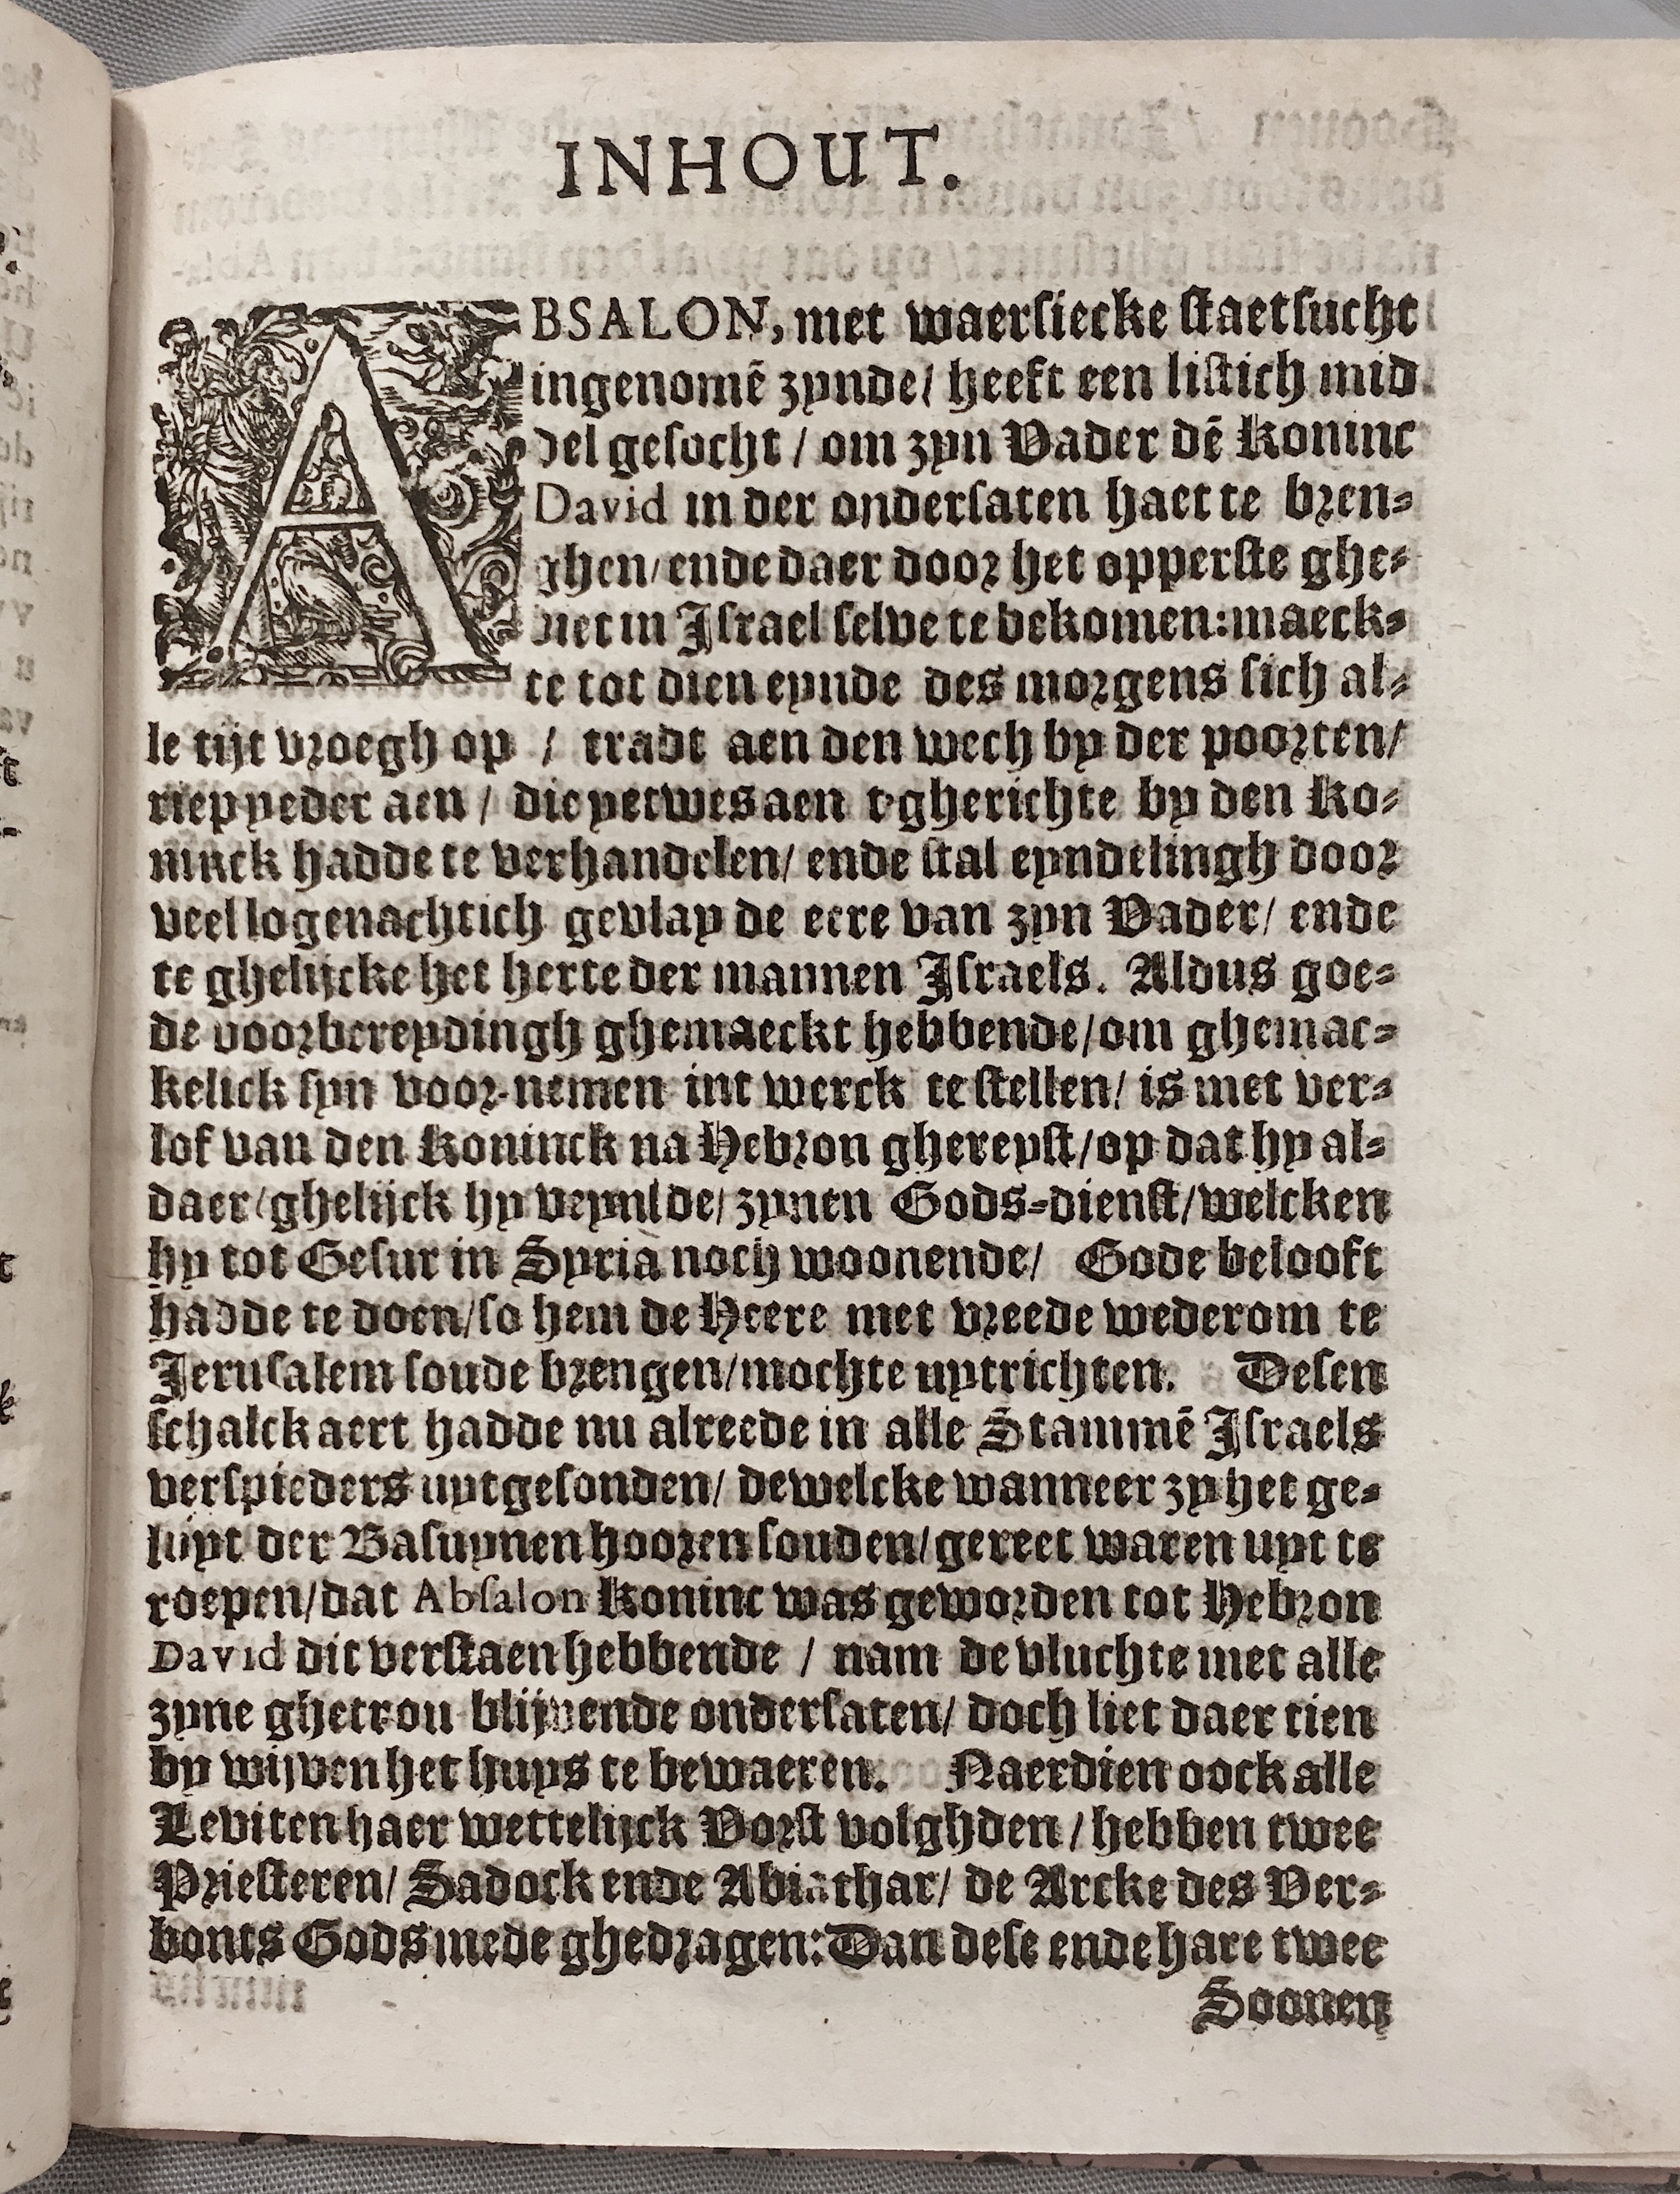 INHOUT.
ABSALON, met waersiecke staetsucht
ingenomē zynde/ heeft een listich mid
del gesocht / om zyn Vader dē Koninc
David in der ondersaten haet te bren-
ghen/ ende daer door het opperste ghe-
biet in Israel selve te bekomen: maeck-
te tot dien eynde des morgens sich al-
le tijt vroegh op / tradt aen den wech by der poorten/
riep yeder aen / die yetwes aen t'gherichte by den Ko-
ninck hadde te verhandelen/ ende stal eyndelingh door
veel logenachtich gevlay de eere van zyn Vader/ ende
te ghelijcke het herte der mannen Israels. Aldus goe-
de voorbereydingh ghemaeckt hebbende/ om ghemac-
kelick syn voor-nemen int werck te stellen/ is met ver-
lof van den Koninck na Hebron ghereyst/ op dat hy al-
daer/ ghelijck hy veynsde/ zynen Gods-dienst/ welcken
hy tot Gesur in Syria noch woonende/ Gode belooft
hadde te doen/ so hem de Heere met vreede wederom te
Jerusalem soude brengen/ mochte uytrichten. Desen
schalckaert hadde nu alreede in alle Stammē Israels
verspieders uytgesonden/ dewelcke wanneer zy het ge-
luyt der Basuynen hooren souden/ gereet waren uyt te
roepen/ dat Absalon Koninc was geworden tot Hebron
David dit verstaen hebbende / nam de vluchte met alle
zyne ghetrou blijvende ondersaten/ doch liet daer tien
by wijven het huys te bewaeren. Naerdien oock alle
Leviten haer wettelijck Vorst volghden / hebben twee
Priesteren/ Sadock ende Abiathar/ de Arcke des Ver-
bonts Gods mede ghedragen: Dan dese ende hare twee
Soonen